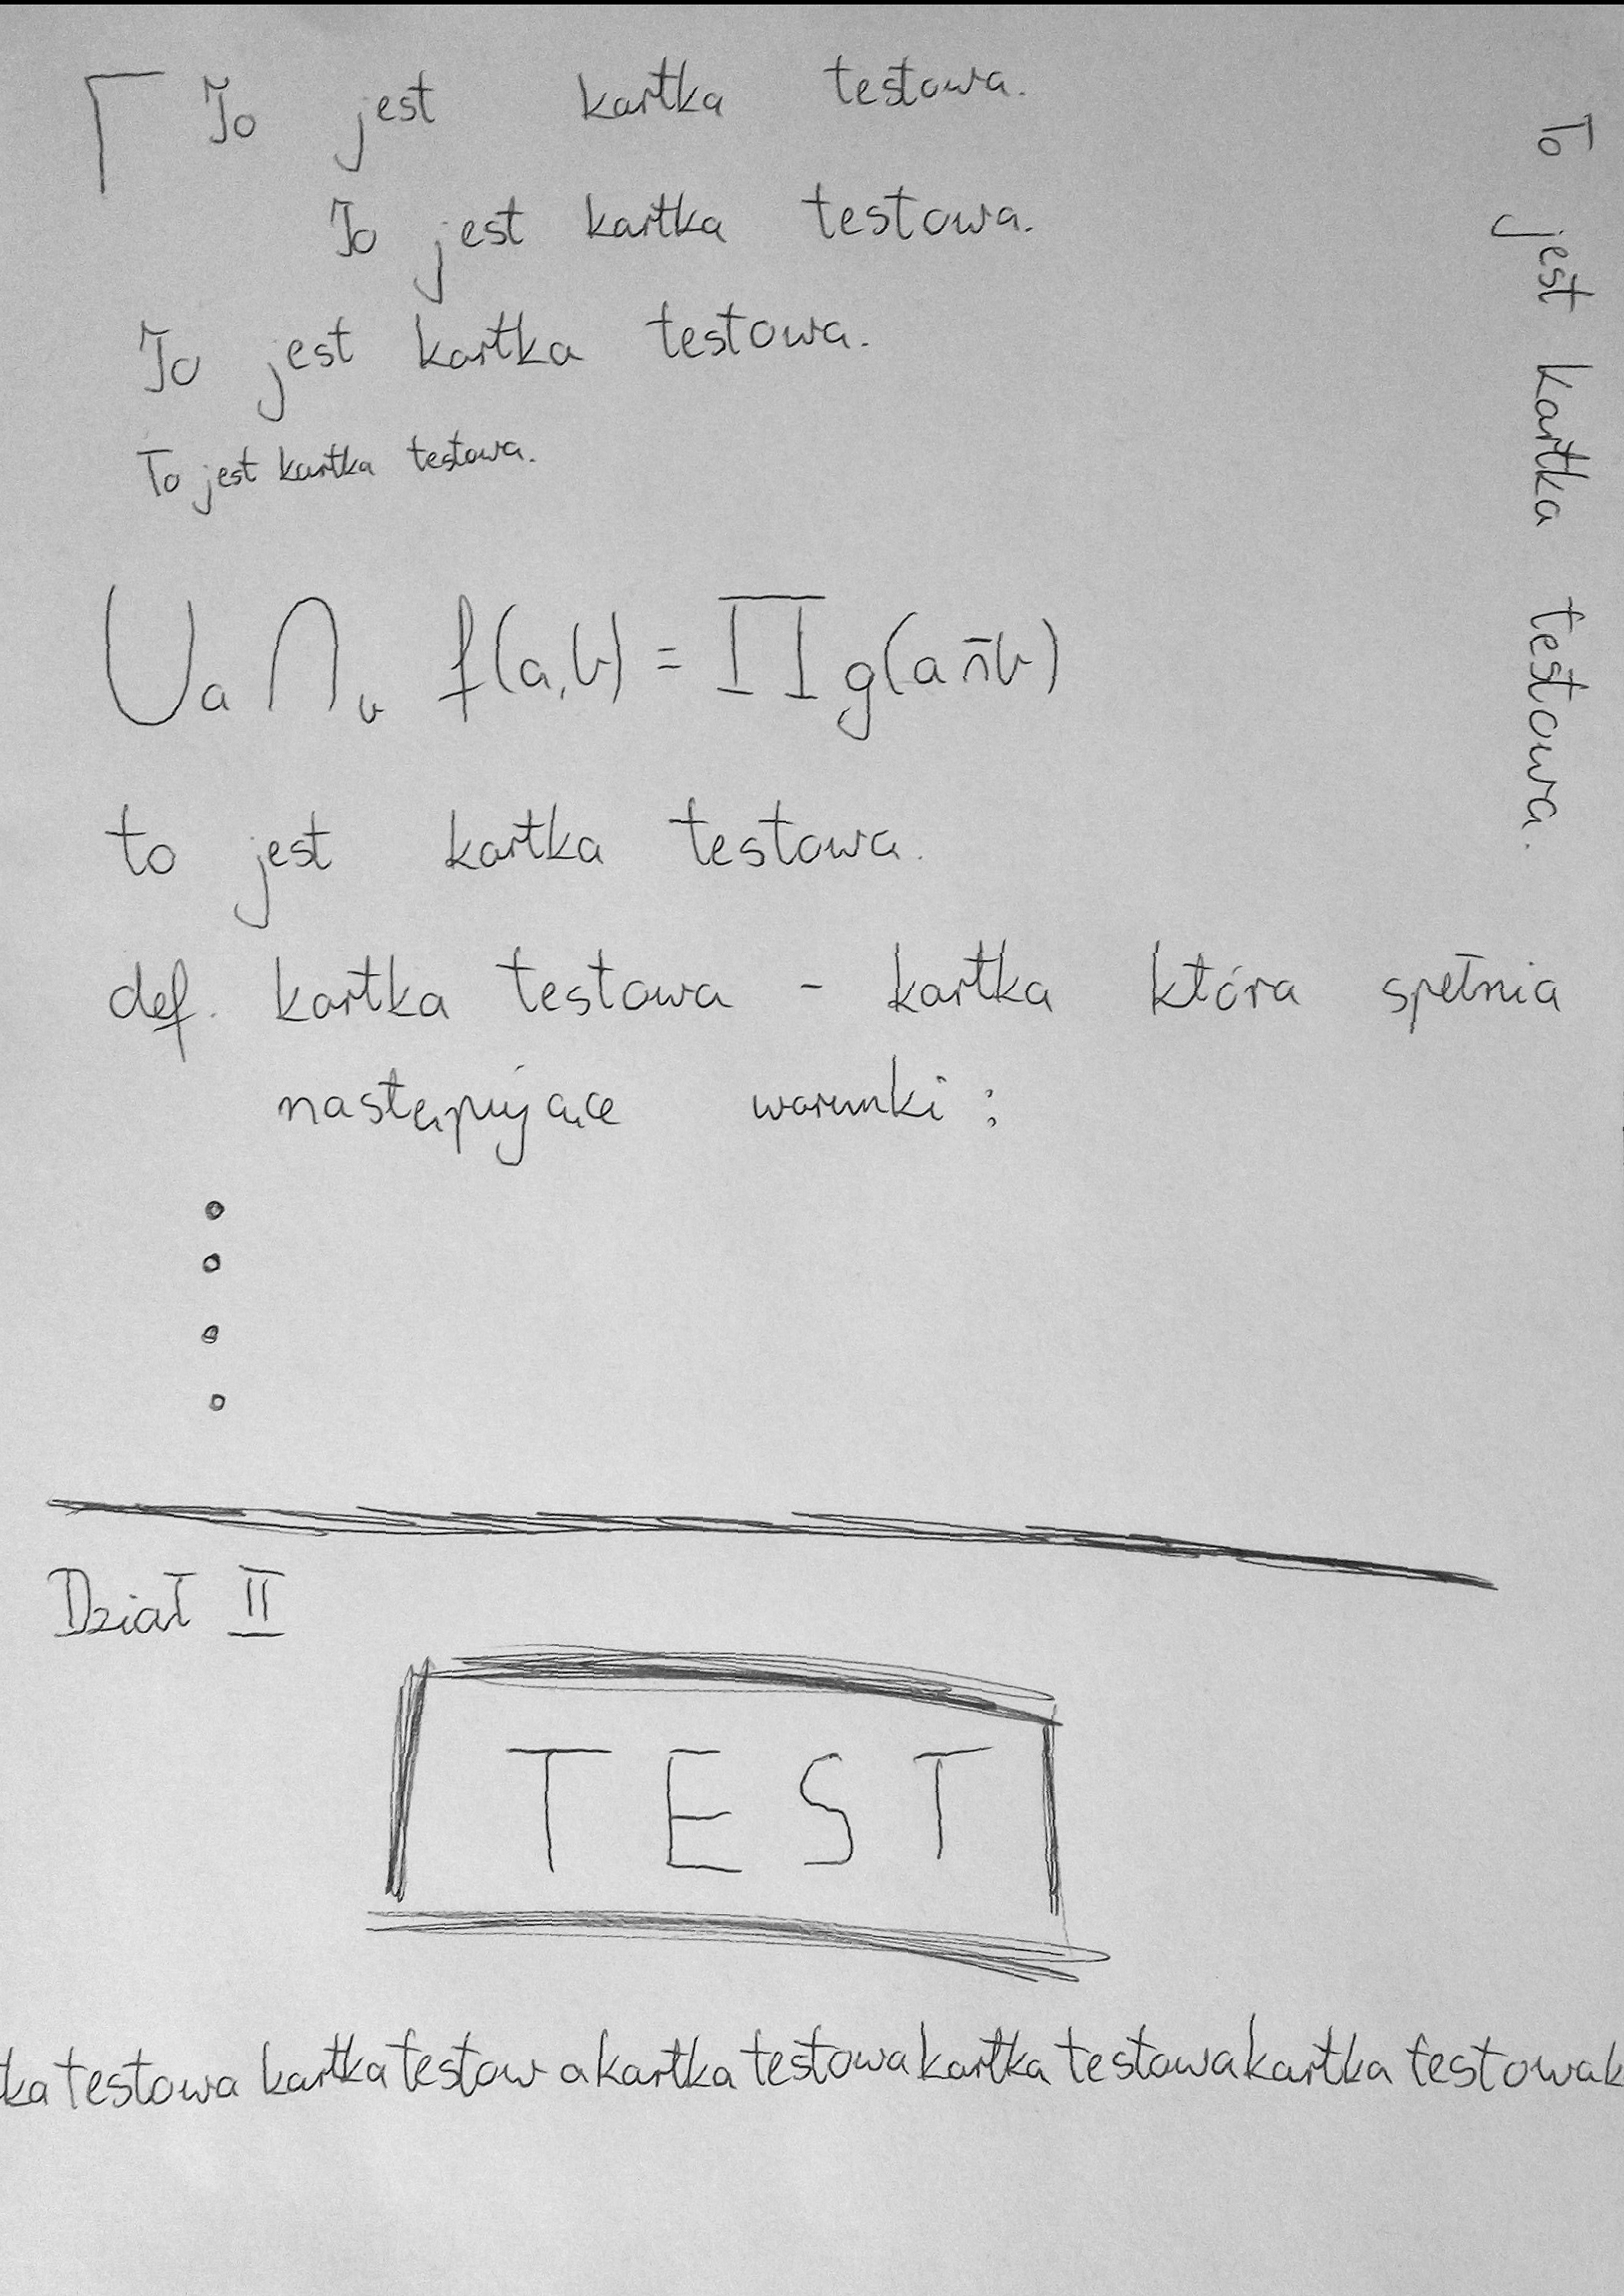 To jest kartka testowa.
To jest kartka testowa.
To jest kartka testowa.
To jest kartka testowa.
⋃a ⋂b f(a,b) = ∏ g(a n̄ b)
to jest kartka testowa.
def. kartka testowa - kartka która spełnia
następujące warunki:
Dział II
TEST
ka testowa kartka testow a kartka testowa kartka testowa kartka testowa k
To jest kartka testowa.